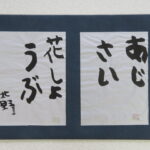 あじ
さい
花しょ
うぶ
太野